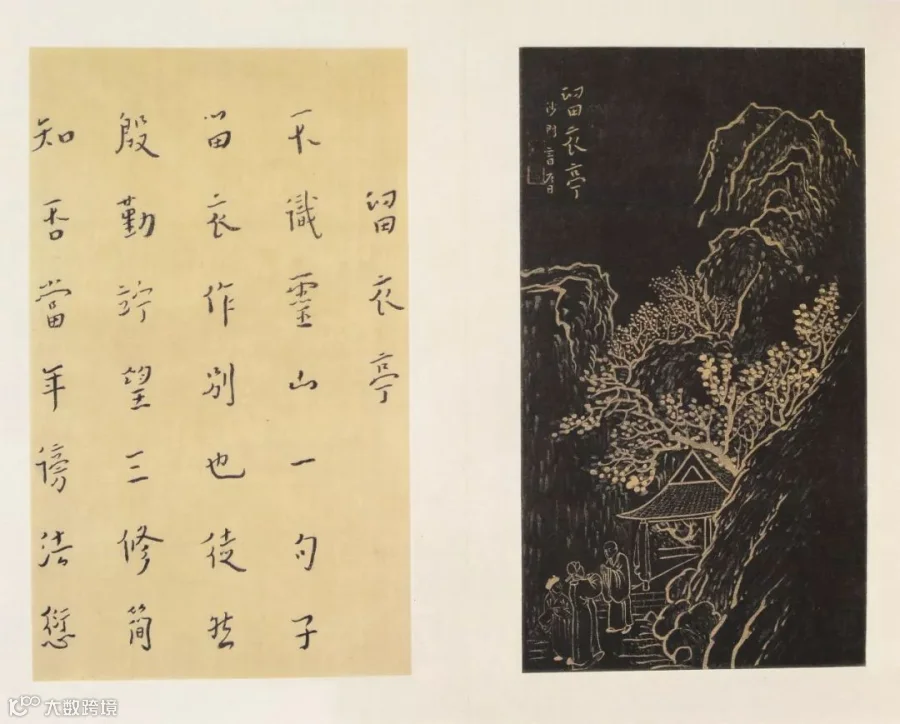 留衣亭
沙門
留衣亭
不識靈山一句子
留衣作別也徒然
殷勤竚望三修簡
知否當年謗法愆
大数跨境